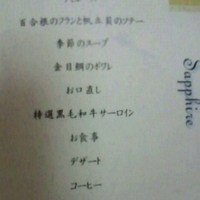 百合根のフランと帆立貝のソテー
季節のスープ
金目鯛のポワレ
お口直し
特選黒毛和牛サーロイン
お食事
デザート
コーヒー
Sapphire